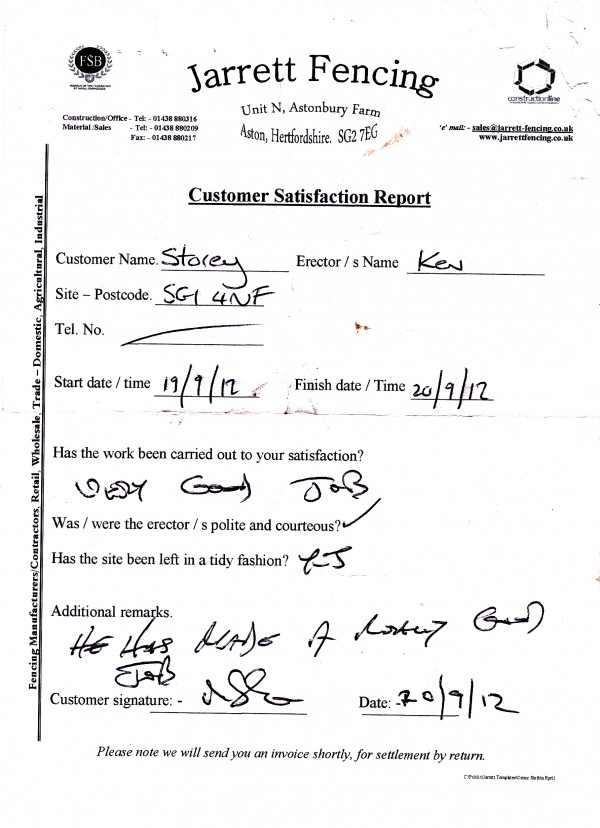 FSB
Jarrett Fencing
constructionline
Unit N, Astonbury Farm
Aston, Hertfordshire. SG2 7EG
Construction/Office - Tel: - 01438 880316
Material /Sales - Tel: - 01438 880209
Fax: - 01438 880217
'e' mail: - sales@jarrett-fencing.co.uk
www.jarrettfencing.co.uk
Customer Satisfaction Report
Fencing Manufacturers/Contractors, Retail, Wholesale, Trade – Domestic, Agricultural, Industrial
Customer Name. Storey Erector / s Name Kev
Site – Postcode. SG1 4NF
Tel. No.
Start date / time 19/9/12 Finish date / Time 20/9/12
Has the work been carried out to your satisfaction?
VERY Good JOB
Was / were the erector / s polite and courteous? ✓
Has the site been left in a tidy fashion? YES
Additional remarks.
HE HAS MADE A Good
JOB
Customer signature: - Date: - 20/9/12
Please note we will send you an invoice shortly, for settlement by return.